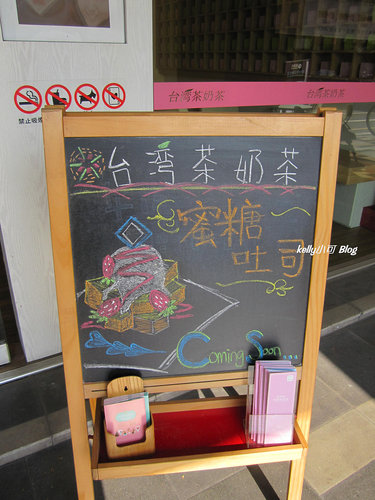 台湾茶奶茶
台湾茶奶茶
禁止吸
台湾茶奶茶
蜜糖
吐司
kelly小可 Blog
Coming Soon